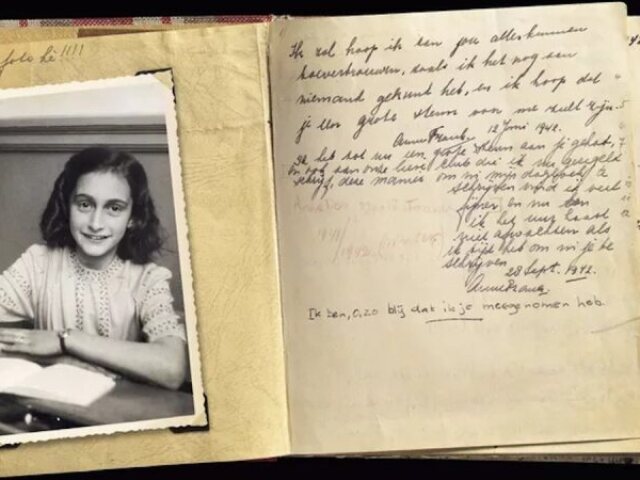 foto hè !!!!
Ik zal hoop ik aan jou alles kunnen
toevertrouwen, zoals ik het nog aan
niemand gekund heb, en ik hoop dat
je een grote steun voor me zult zijn.
Anne Frank. 12 Juni 1942.
Ik heb tot nu een grote steun aan je gehad,
en ook aan onze lieve club die ik nu geregeld
schrijf, deze manier om in mijn dagboek te
schrijven vind ik veel
fijner en nu kan
ik het uur haast
niet afwachten als
ik tijd heb om in je te
schrijven.
28 Sept. 1942.
Anne Frank.
Ik ben, o, zo blij dat ik je meegenomen heb.